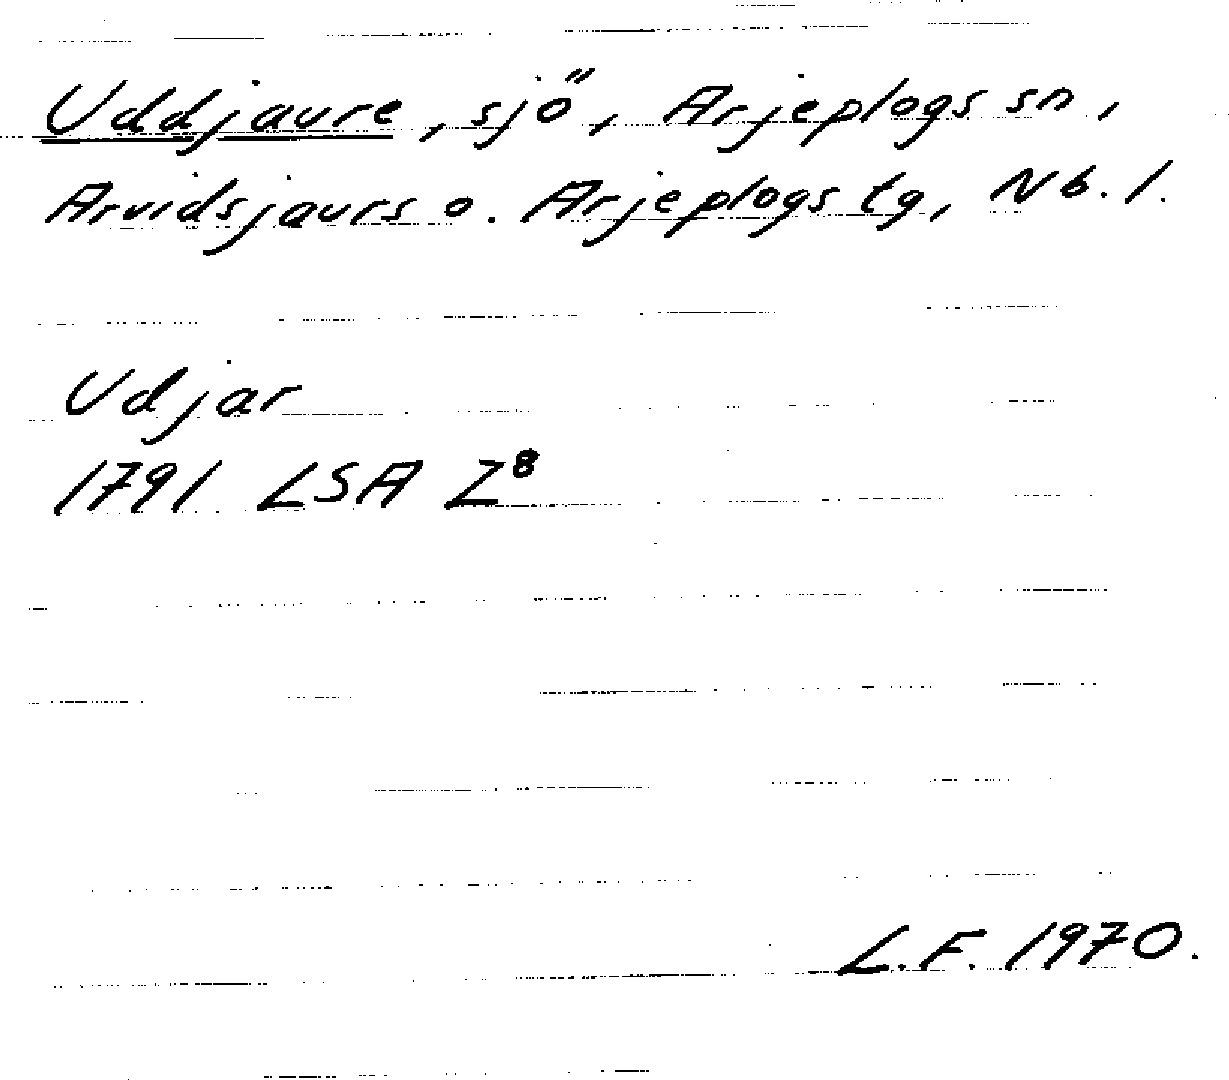 Uddjaure, sjö, Arjeplogs sn,
Arvidsjaurs o. Arjeplogs tg, Nb. l.
Udjar
1791 LSA Z⁸
L.F. 1970.